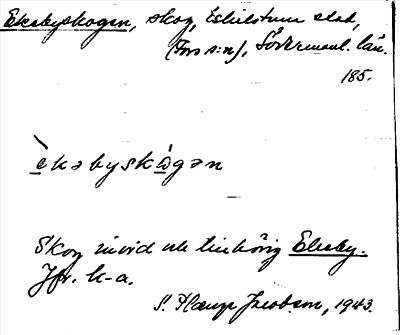 Ekebyskogen, skog, Eskilstuna stad,
(Fors s:n), Södermanl. län.
185.
èkəbyskògən
Skog invid och tillhörig Ekeby.
Jfr. k-a.
S. Hampe Jacobson, 1943.